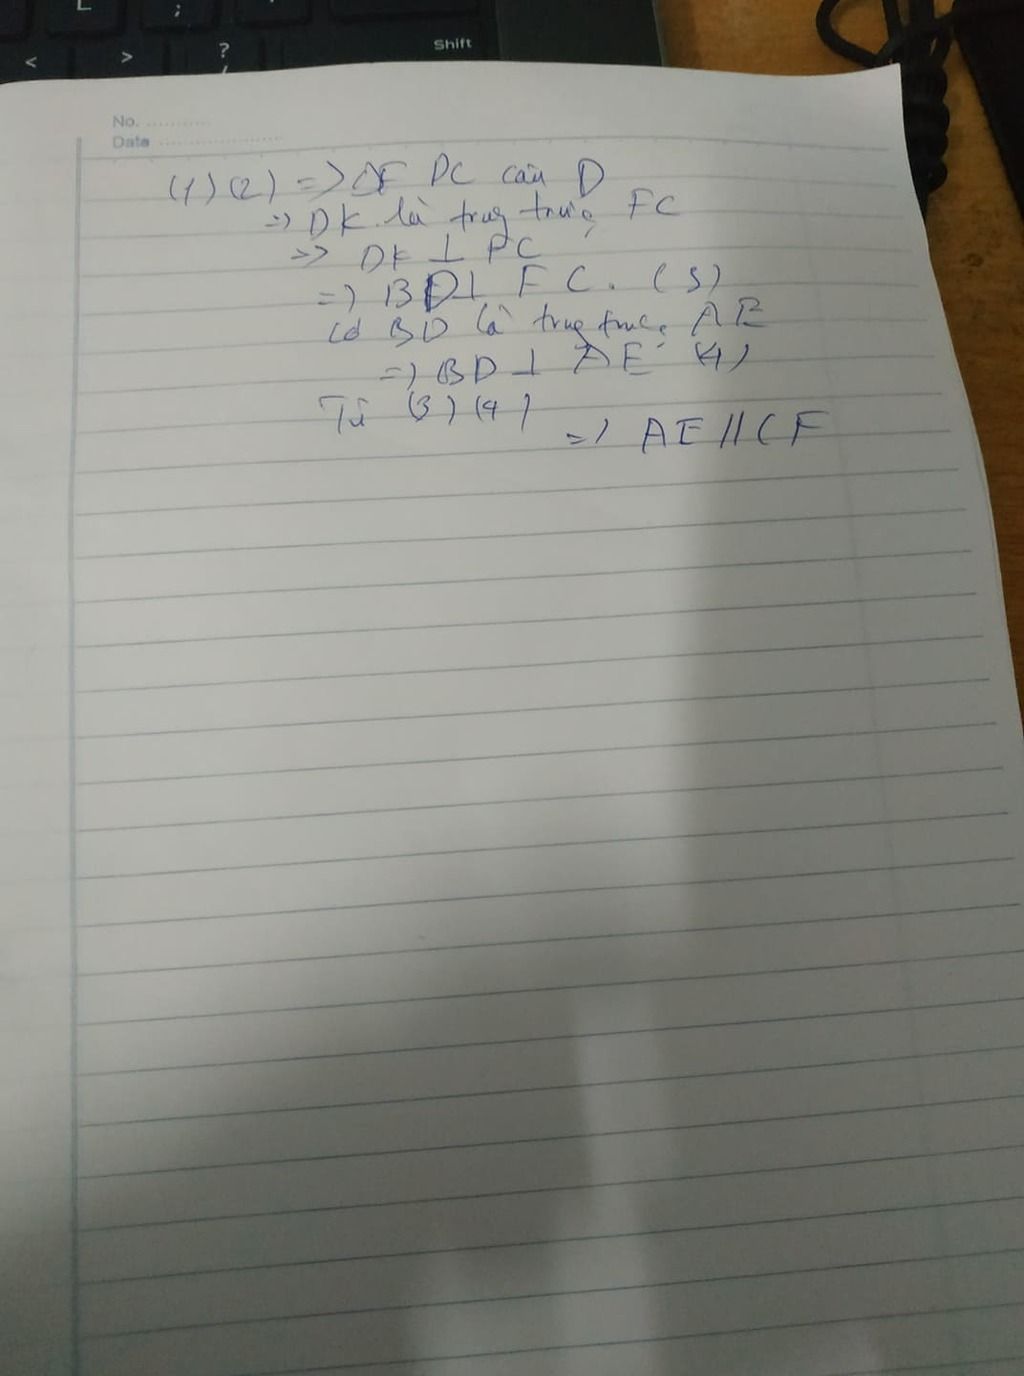 L ;
< > ? / Shift
No. ...........
Date ....................
(1) (2) => ΔF DC cân D
=> DK là trung trực FC
=> DK ⊥ FC
=> BD ⊥ FC. (3)
Có BD là trung trực AE
=> BD ⊥ AE (4)
Từ (3) (4)
=> AE // CF